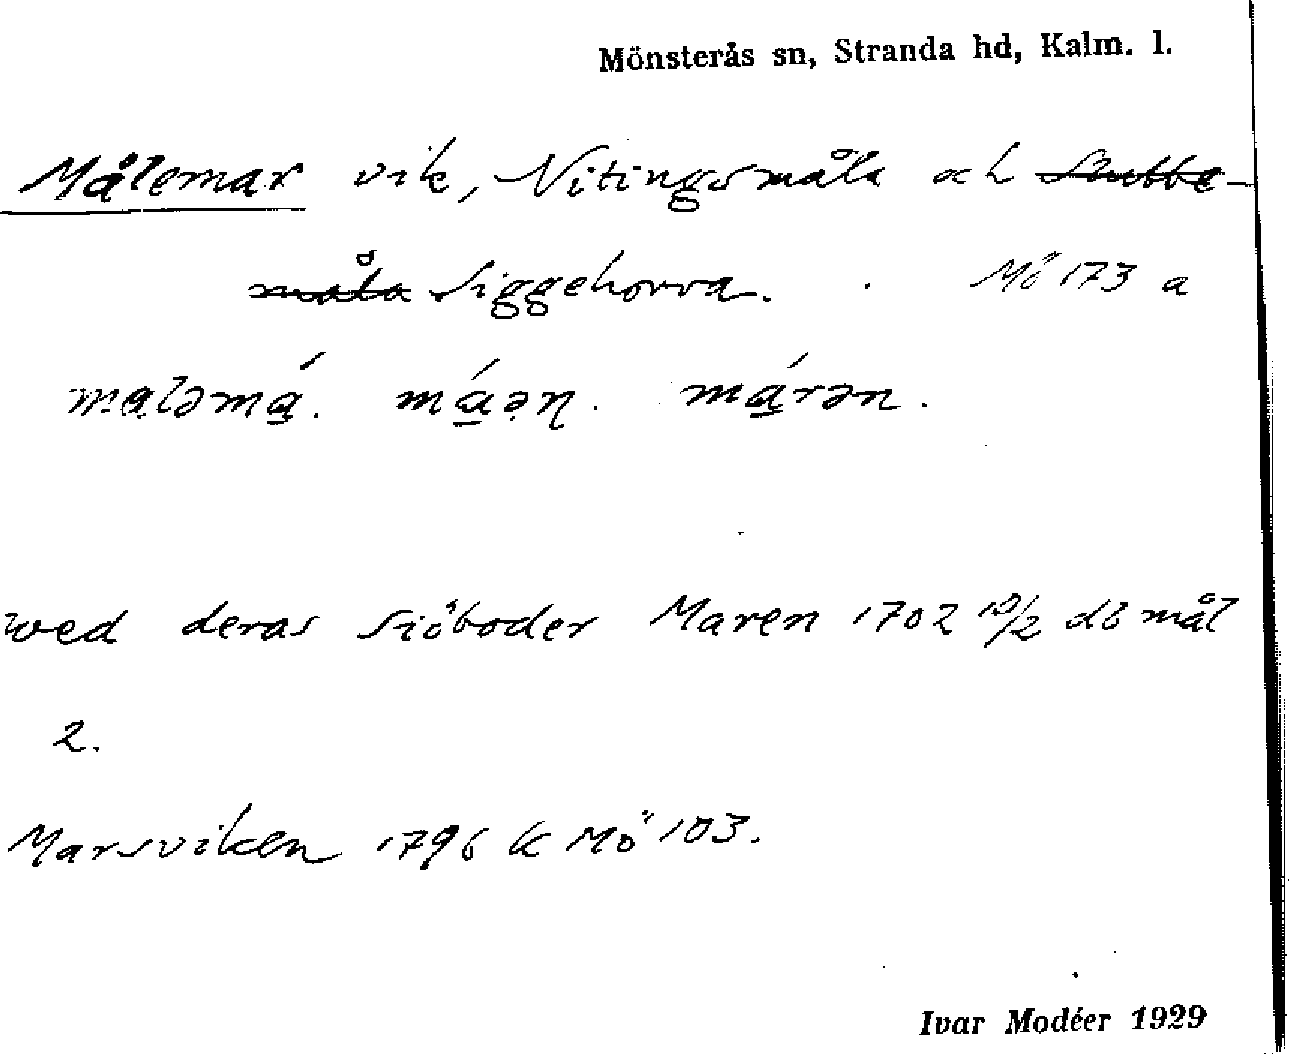 Mönsterås sn, Stranda hd, Kalm. l.
Målemar vik, Nitingsmåla och Stubbe-
måla Siggehorva. Mö 173 a
maləmá. máəɳ. márən.
wed deras siöboder Maren 1702 10/2 db mål
2.
Marsviken 1796 k Mö 103.
Ivar Modéer 1929